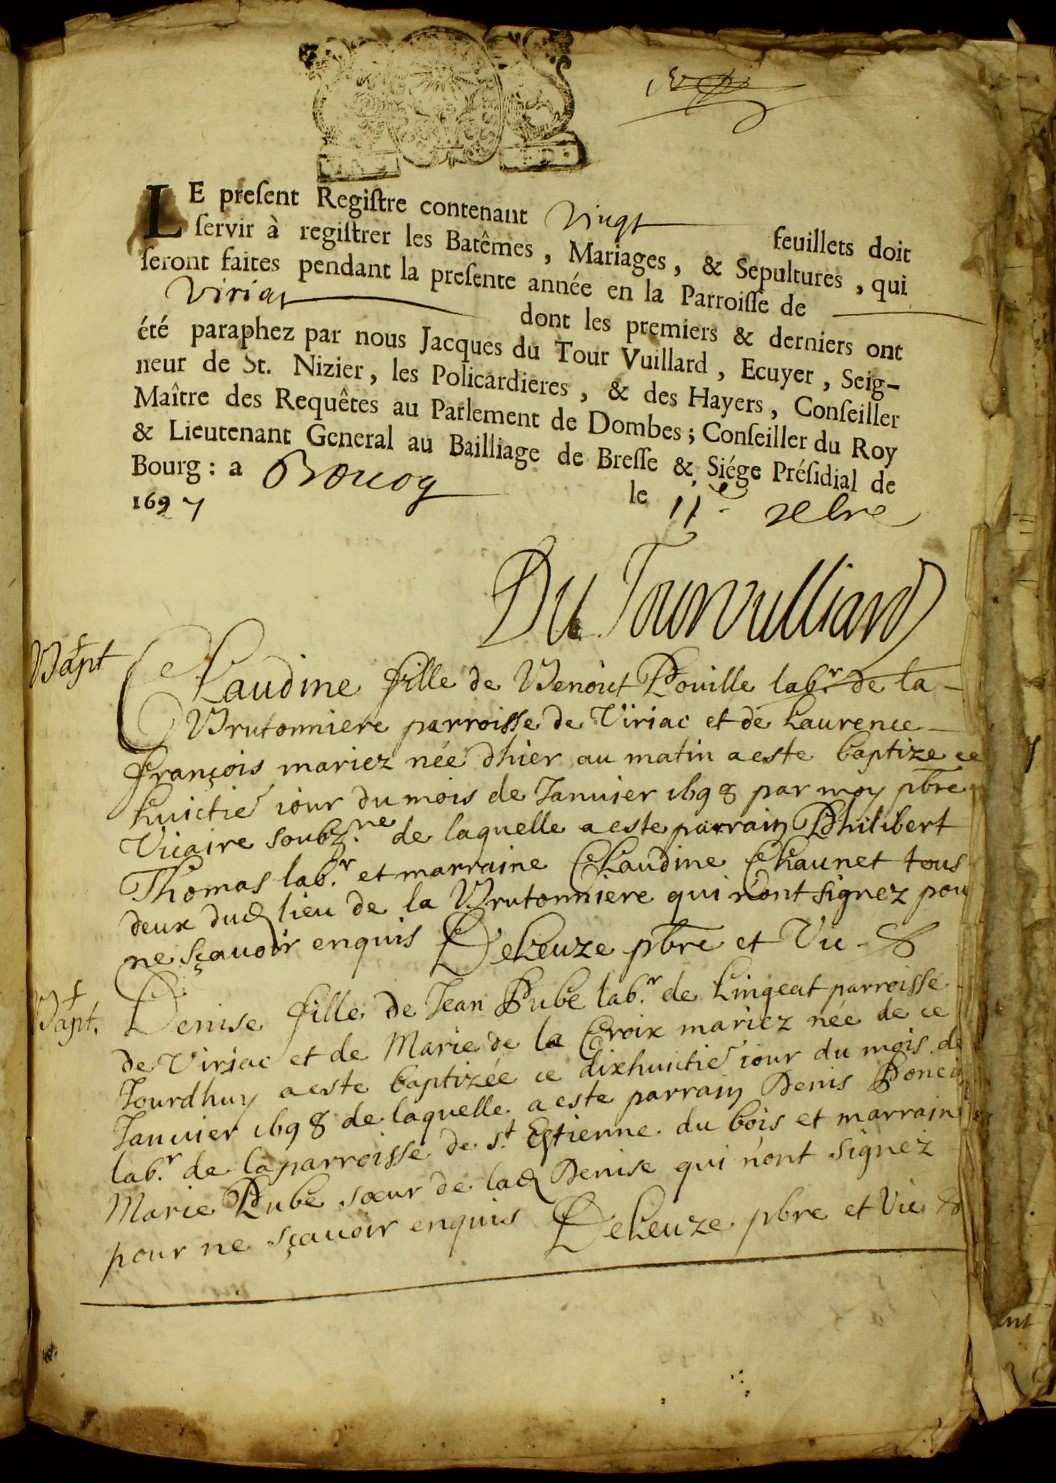 LE preſent Regiſtre contenant vingt feuillets doit
ſervir à regiſtrer les Batêmes, Mariages, & Sepultures, qui
ſeront faites pendant la preſente année en la Parroiſſe de
Viriat dont les premiers & derniers ont
été paraphez par nous Jacques du Tour Vuillard, Ecuyer, Seig-
neur de St. Nizier, les Policardieres, & des Hayers, Conſeiller
Maître des Requêtes au Parlement de Dombes; Conſeiller du Roy
& Lieutenant General au Bailliage de Breſſe & Siége Préſidial de
Bourg: a Bourg le 11e xbre
1697
Du Tourvulliard
Bapt
Claudine fille de Benoict Pouille labr. de la
Brutonniere parroisse de Viriac et de Laurence
françois mariez née dhier au matin a este baptize ce
huictie iour du mois de Ianuier 1698 par moy pbre
Vicaire soubz.ne de laquelle a este parrain Philibert
Thomas labr. et marraine Claudine Chaunet tous
deux dud lieu de la Brutonniere qui n'ont signez pou
ne sçavoir enquis DeLeuze pbre et Vic
Bapt.
Denise fille de Jean Pube labr. de Lingeat parroisse
de Viriac et de Marie de la Croix mariez née de ce
Jourdhuy a este baptizée ce dixhuitie iour du mois de
Ianuier 1698 de laquelle a este parrain Denis Poncin
labr. de la parroisse de st Estienne du bois et marrain
Marie Pube sœur de lad Denise qui n'ont signez
pour ne sçauoir enquis DeLeuze pbre et Vic